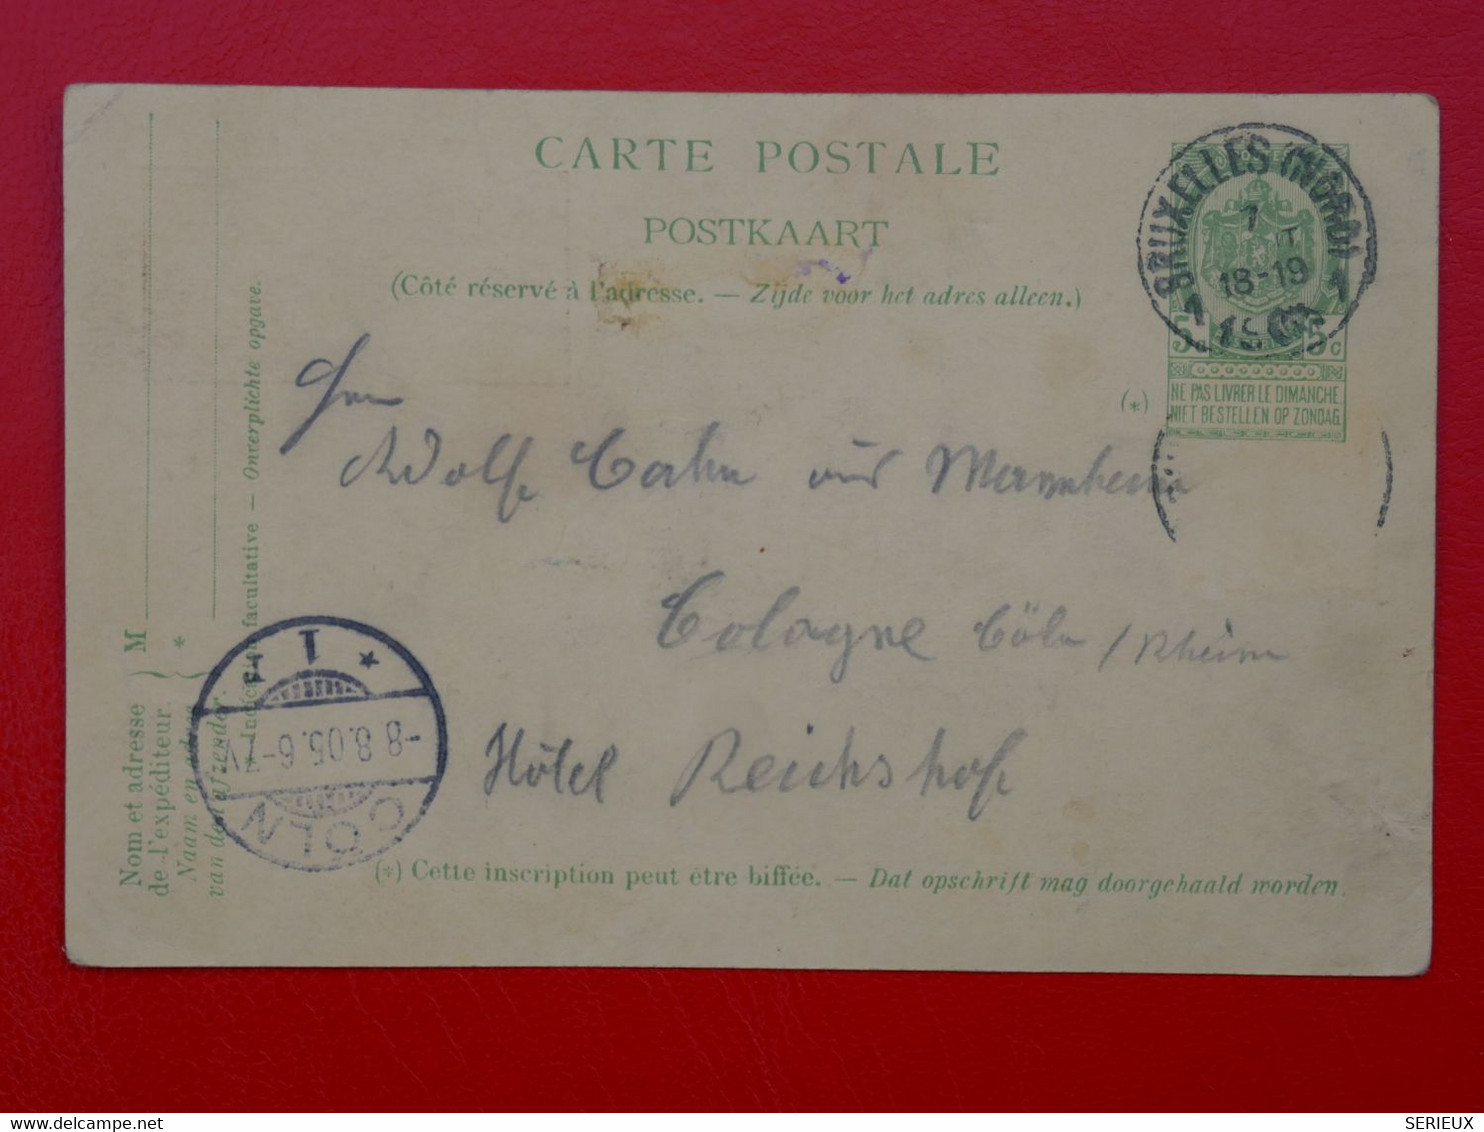 CARTE POSTALE
POSTKAART
(Côté réservé à l'adresse. — Zijde voor het adres alleen.)
BRUXELLES (NORD)
7
18-19
1 1
5c 5c
NE PAS LIVRER LE DIMANCHE.
NIET BESTELLEN OP ZONDAG.
(*)
Herrn
Adolf Cahn aus Mannheim
Cologne Cöln / Rhein
Hôtel Reichshof
(*) Cette inscription peut être biffée. — Dat opschrift mag doorgehaald worden.
Nom et adresse
de l'expéditeur.
Naam en adres
van den afzender.
M
*
* Indication facultative — Onverplichte opgave.
CÖLN
-8.8.05.6-7V.
* 1
SERIEUX